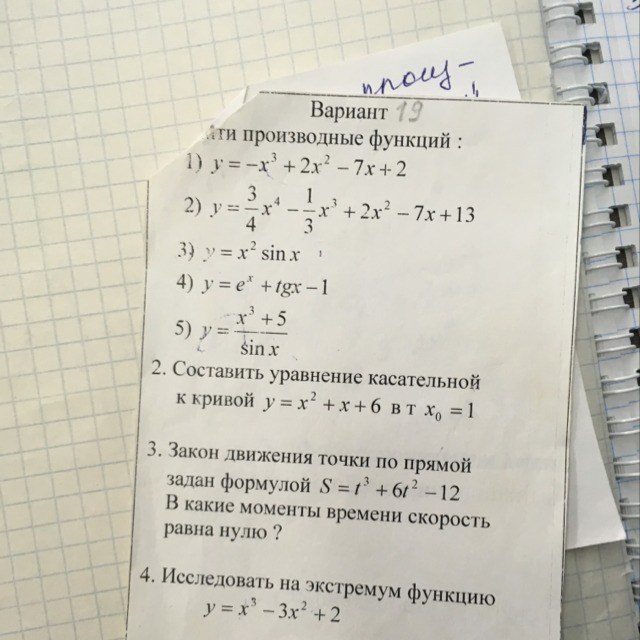 произ-
Вариант 19
йти производные функций :
1) y = −x³ + 2x² − 7x + 2
2) y = 3/4 x⁴ − 1/3 x³ + 2x² − 7x + 13
3) y = x² sin x
4) y = eˣ + tgx − 1
5) y = (x³ + 5)/(sin x)
2. Составить уравнение касательной
к кривой y = x² + x + 6 в т x₀ = 1
3. Закон движения точки по прямой
задан формулой S = t³ + 6t² − 12
В какие моменты времени скорость
равна нулю ?
4. Исследовать на экстремум функцию
y = x³ − 3x² + 2